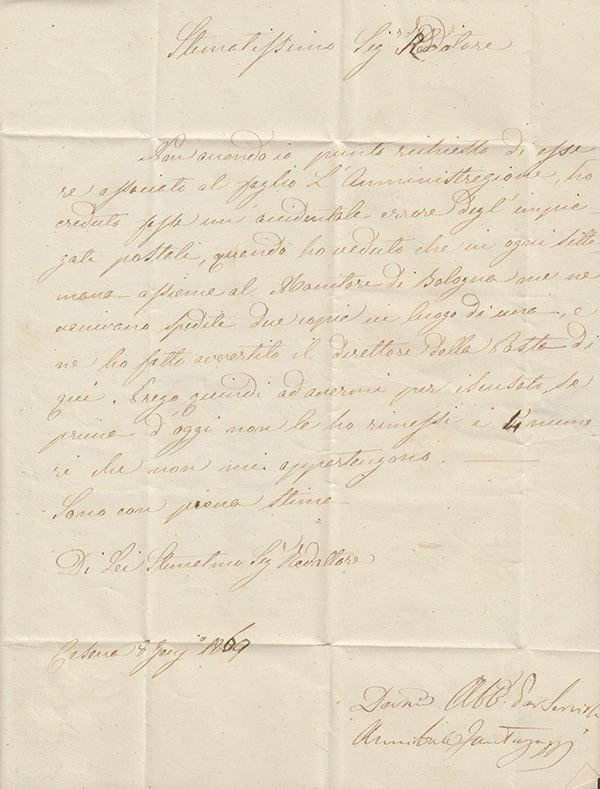 Stimatissimo Sig.r Redattore
Non avendo io punto richiesto di esse
re associato al foglio L'Amministrazione, ho
creduto fosse un' accidentale errore degl' impie
gati postali, quando ho veduto che in ogni setti
mana assieme al Monitore di Bologna me ne
venivano spedite due copie in luogo di una, e
ne ho fatto avvertito il direttore della Posta di
quì. Prego quindi ad avermi per iscusato, se
prima d'oggi non le ho rimessi i 4 nume
ri che non mi appartengono.
Sono con piena stima
Di Lei Stimatmo Sig.r Redattore
Cesena 8 1869
Servitore
Annibale